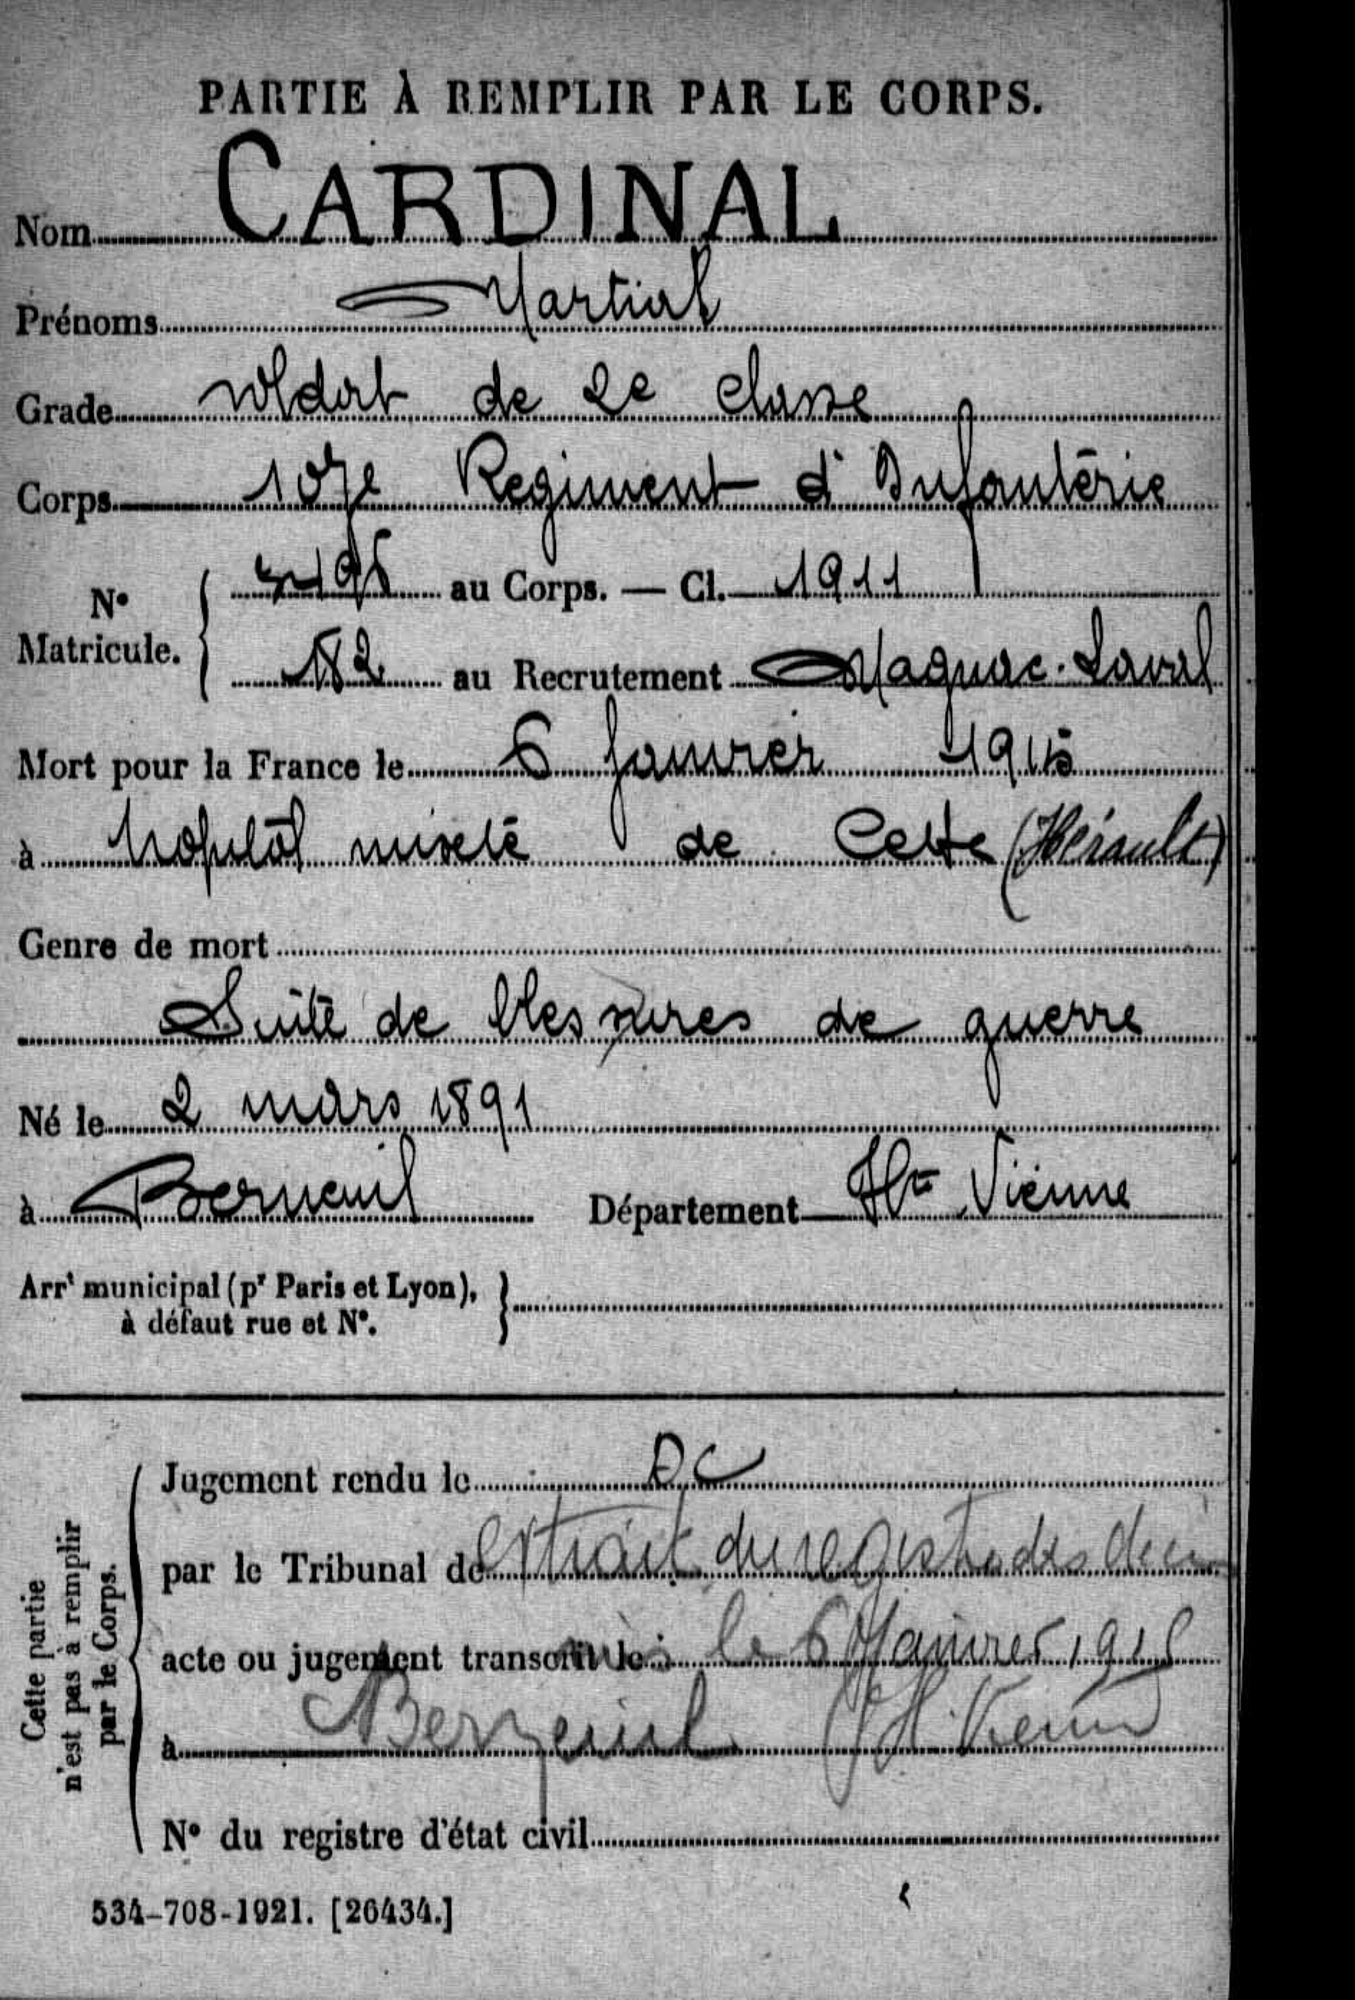 PARTIE À REMPLIR PAR LE CORPS.
Nom CARDINAL
Prénoms Martial
Grade soldat de 2e classe
Corps 107e Regiment d'Infantérie
N° Matricule. { au Corps. — Cl. 1911
182 au Recrutement Magnac-Laval
Mort pour la France le 6 Janvier 1915
à hopital mixte de Cette (Hérault)
Genre de mort
Suite de blessures de guerre
Né le 2 mars 1891
à Berneuil Département Hte Vienne
Arrt municipal (pr Paris et Lyon),
à défaut rue et N°. }
Cette partie
n'est pas à remplir
par le Corps.
Jugement rendu le DC
par le Tribunal de extrait du registre des
acte ou jugement transcrit le le 6 Janvier 1915
à Berneuil
N° du registre d'état civil
534-708-1921. [26434.]